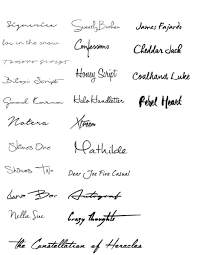 Signerica
Sincerely, Brohen
James Fajardo
Fox in the snow
Confessions
Cheddar Jack
Biloxi Script
Honey Script
Coalhand Luke
Good Karma
Halo Handletter
Rebel Heart
Notera
Xtreem
Shows One
Mathilde
Shows Two
Dear Joe Five Casual
Luna Bar
Autograf
Nella Sue
Crazy Thoughts
the Constellation of Heracles